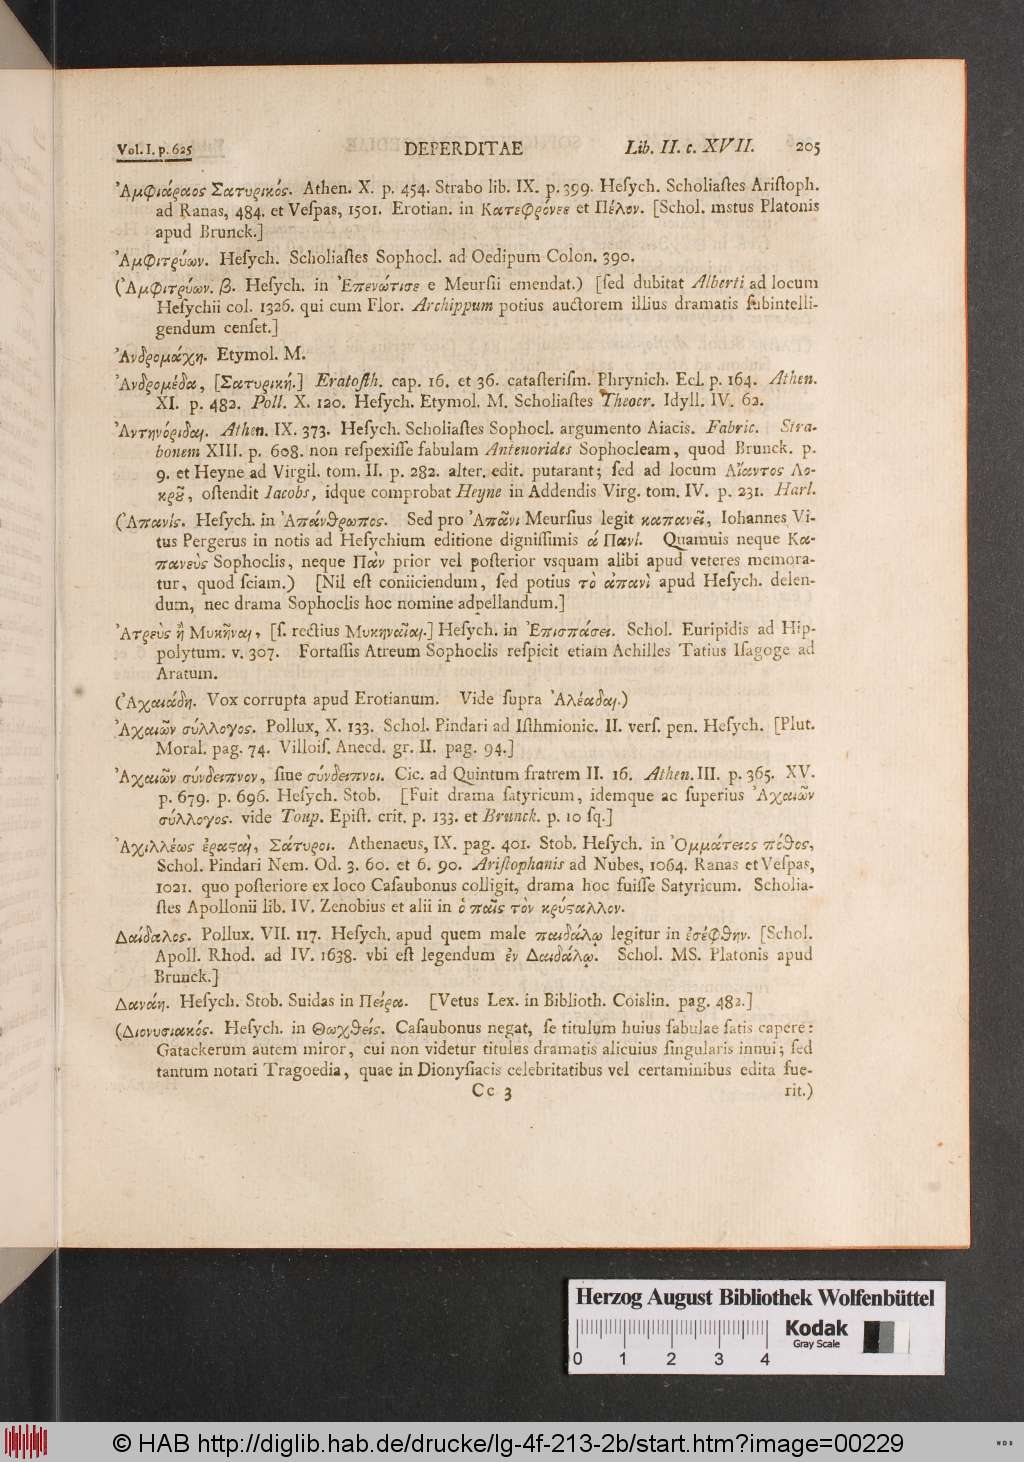 Vol. I. p. 625 DEPERDITAE Lib. II. c. XVII. 205
Ἀμφιάραος Σατυρικός. Athen. X. p. 454. Strabo lib. IX. p. 399. Heſych. Scholiaſtes Ariſtoph.
ad Ranas, 484. et Veſpas, 1501. Erotian. in Κατεφρόνεε et Πέλον. [Schol. mstus Platonis
apud Brunck.]
Ἀμφιτρύων. Heſych. Scholiaſtes Sophocl. ad Oedipum Colon. 390.
(Ἀμφιτρύων. β. Heſych. in Ἐπενώτισε e Meurſii emendat.) [ſed dubitat Alberti ad locum
Heſychii col. 1326. qui cum Flor. Archippum potius auctorem illius dramatis ſubintelli-
gendum cenſet.]
Ἀνδρομάχη. Etymol. M.
Ἀνδρομέδα, [Σατυρική.] Eratoſth. cap. 16. et 36. cataſteriſm. Phrynich. Ecl. p. 164. Athen.
XI. p. 482. Poll. X. 120. Heſych. Etymol. M. Scholiaſtes Theocr. Idyll. IV. 62.
Ἀντηνόριδαι. Athen. IX. 373. Heſych. Scholiaſtes Sophocl. argumento Aiacis. Fabric. Stra-
bonem XIII. p. 608. non reſpexiſſe fabulam Antenorides Sophocleam, quod Brunck. p.
9. et Heyne ad Virgil. tom. II. p. 282. alter. edit. putarant; ſed ad locum Αἴαντος Λο-
κροῦ, oſtendit Iacobs, idque comprobat Heyne in Addendis Virg. tom. IV. p. 231. Harl.
(Ἀπανίς. Heſych. in Ἀπάνθρωπος. Sed pro Ἀπᾶνι Meurſius legit καπανεῖ, Iohannes Vi-
tus Pergerus in notis ad Heſychium editione digniſſimis ἁ Πανί. Quamuis neque Κα-
πανεὺς Sophoclis, neque Πὰν prior vel poſterior vsquam alibi apud veteres memora-
tur, quod ſciam.) [Nil eſt coniiciendum, ſed potius τὸ ἀπανὶ apud Heſych. delen-
dum, nec drama Sophoclis hoc nomine adpellandum.]
Ἀτρεὺς ἢ Μυκῆναι, [ſ. rectius Μυκηναῖαι.] Heſych. in Ἐπισπάσει. Schol. Euripidis ad Hip-
polytum. v. 307. Fortaſſis Atreum Sophoclis reſpicit etiam Achilles Tatius Iſagoge ad
Aratum.
(Ἀχαιάδη. Vox corrupta apud Erotianum. Vide ſupra Ἀλέαδαι.)
Ἀχαιῶν σύλλογος. Pollux, X. 133. Schol. Pindari ad Iſthmionic. II. verſ. pen. Heſych. [Plut.
Moral. pag. 74. Villoiſ. Anecd. gr. II. pag. 94.]
Ἀχαιῶν σύνδειπνον, ſiue σύνδειπνοι. Cic. ad Quintum fratrem II. 16. Athen. III. p. 365. XV.
p. 679. p. 696. Heſych. Stob. [Fuit drama ſatyricum, idemque ac ſuperius Ἀχαιῶν
σύλλογος. vide Toup. Epiſt. crit. p. 133. et Brunck. p. 10 ſq.]
Ἀχιλλέως ἐραϛαὶ, Σάτυροι. Athenaeus, IX. pag. 401. Stob. Heſych. in Ὀμμάτειος πόθος,
Schol. Pindari Nem. Od. 3. 60. et 6. 90. Ariſtophanis ad Nubes, 1064. Ranas et Veſpas,
1021. quo poſteriore ex loco Caſaubonus colligit, drama hoc fuiſſe Satyricum. Scholia-
ſtes Apollonii lib. IV. Zenobius et alii in ὁ παῖς τὸν κρύϛαλλον.
Δαίδαλος. Pollux. VII. 117. Heſych. apud quem male παιδάλῳ legitur in ἐσέφθην. [Schol.
Apoll. Rhod. ad IV. 1638. vbi eſt legendum ἐν Δαιδάλῳ. Schol. MS. Platonis apud
Brunck.]
Δανάη. Heſych. Stob. Suidas in Πείρα. [Vetus Lex. in Biblioth. Coislin. pag. 482.]
(Διονυσιακός. Heſych. in Θωχθείς. Caſaubonus negat, ſe titulum huius fabulae ſatis capere:
Gatackerum autem miror, cui non videtur titulus dramatis alicuius ſingularis innui; ſed
tantum notari Tragoedia, quae in Dionyſiacis celebritatibus vel certaminibus edita fue-
Cc 3 rit.)
Herzog August Bibliothek Wolfenbüttel
Kodak
Gray Scale
0 1 2 3 4
© HAB http://diglib.hab.de/drucke/lg-4f-213-2b/start.htm?image=00229